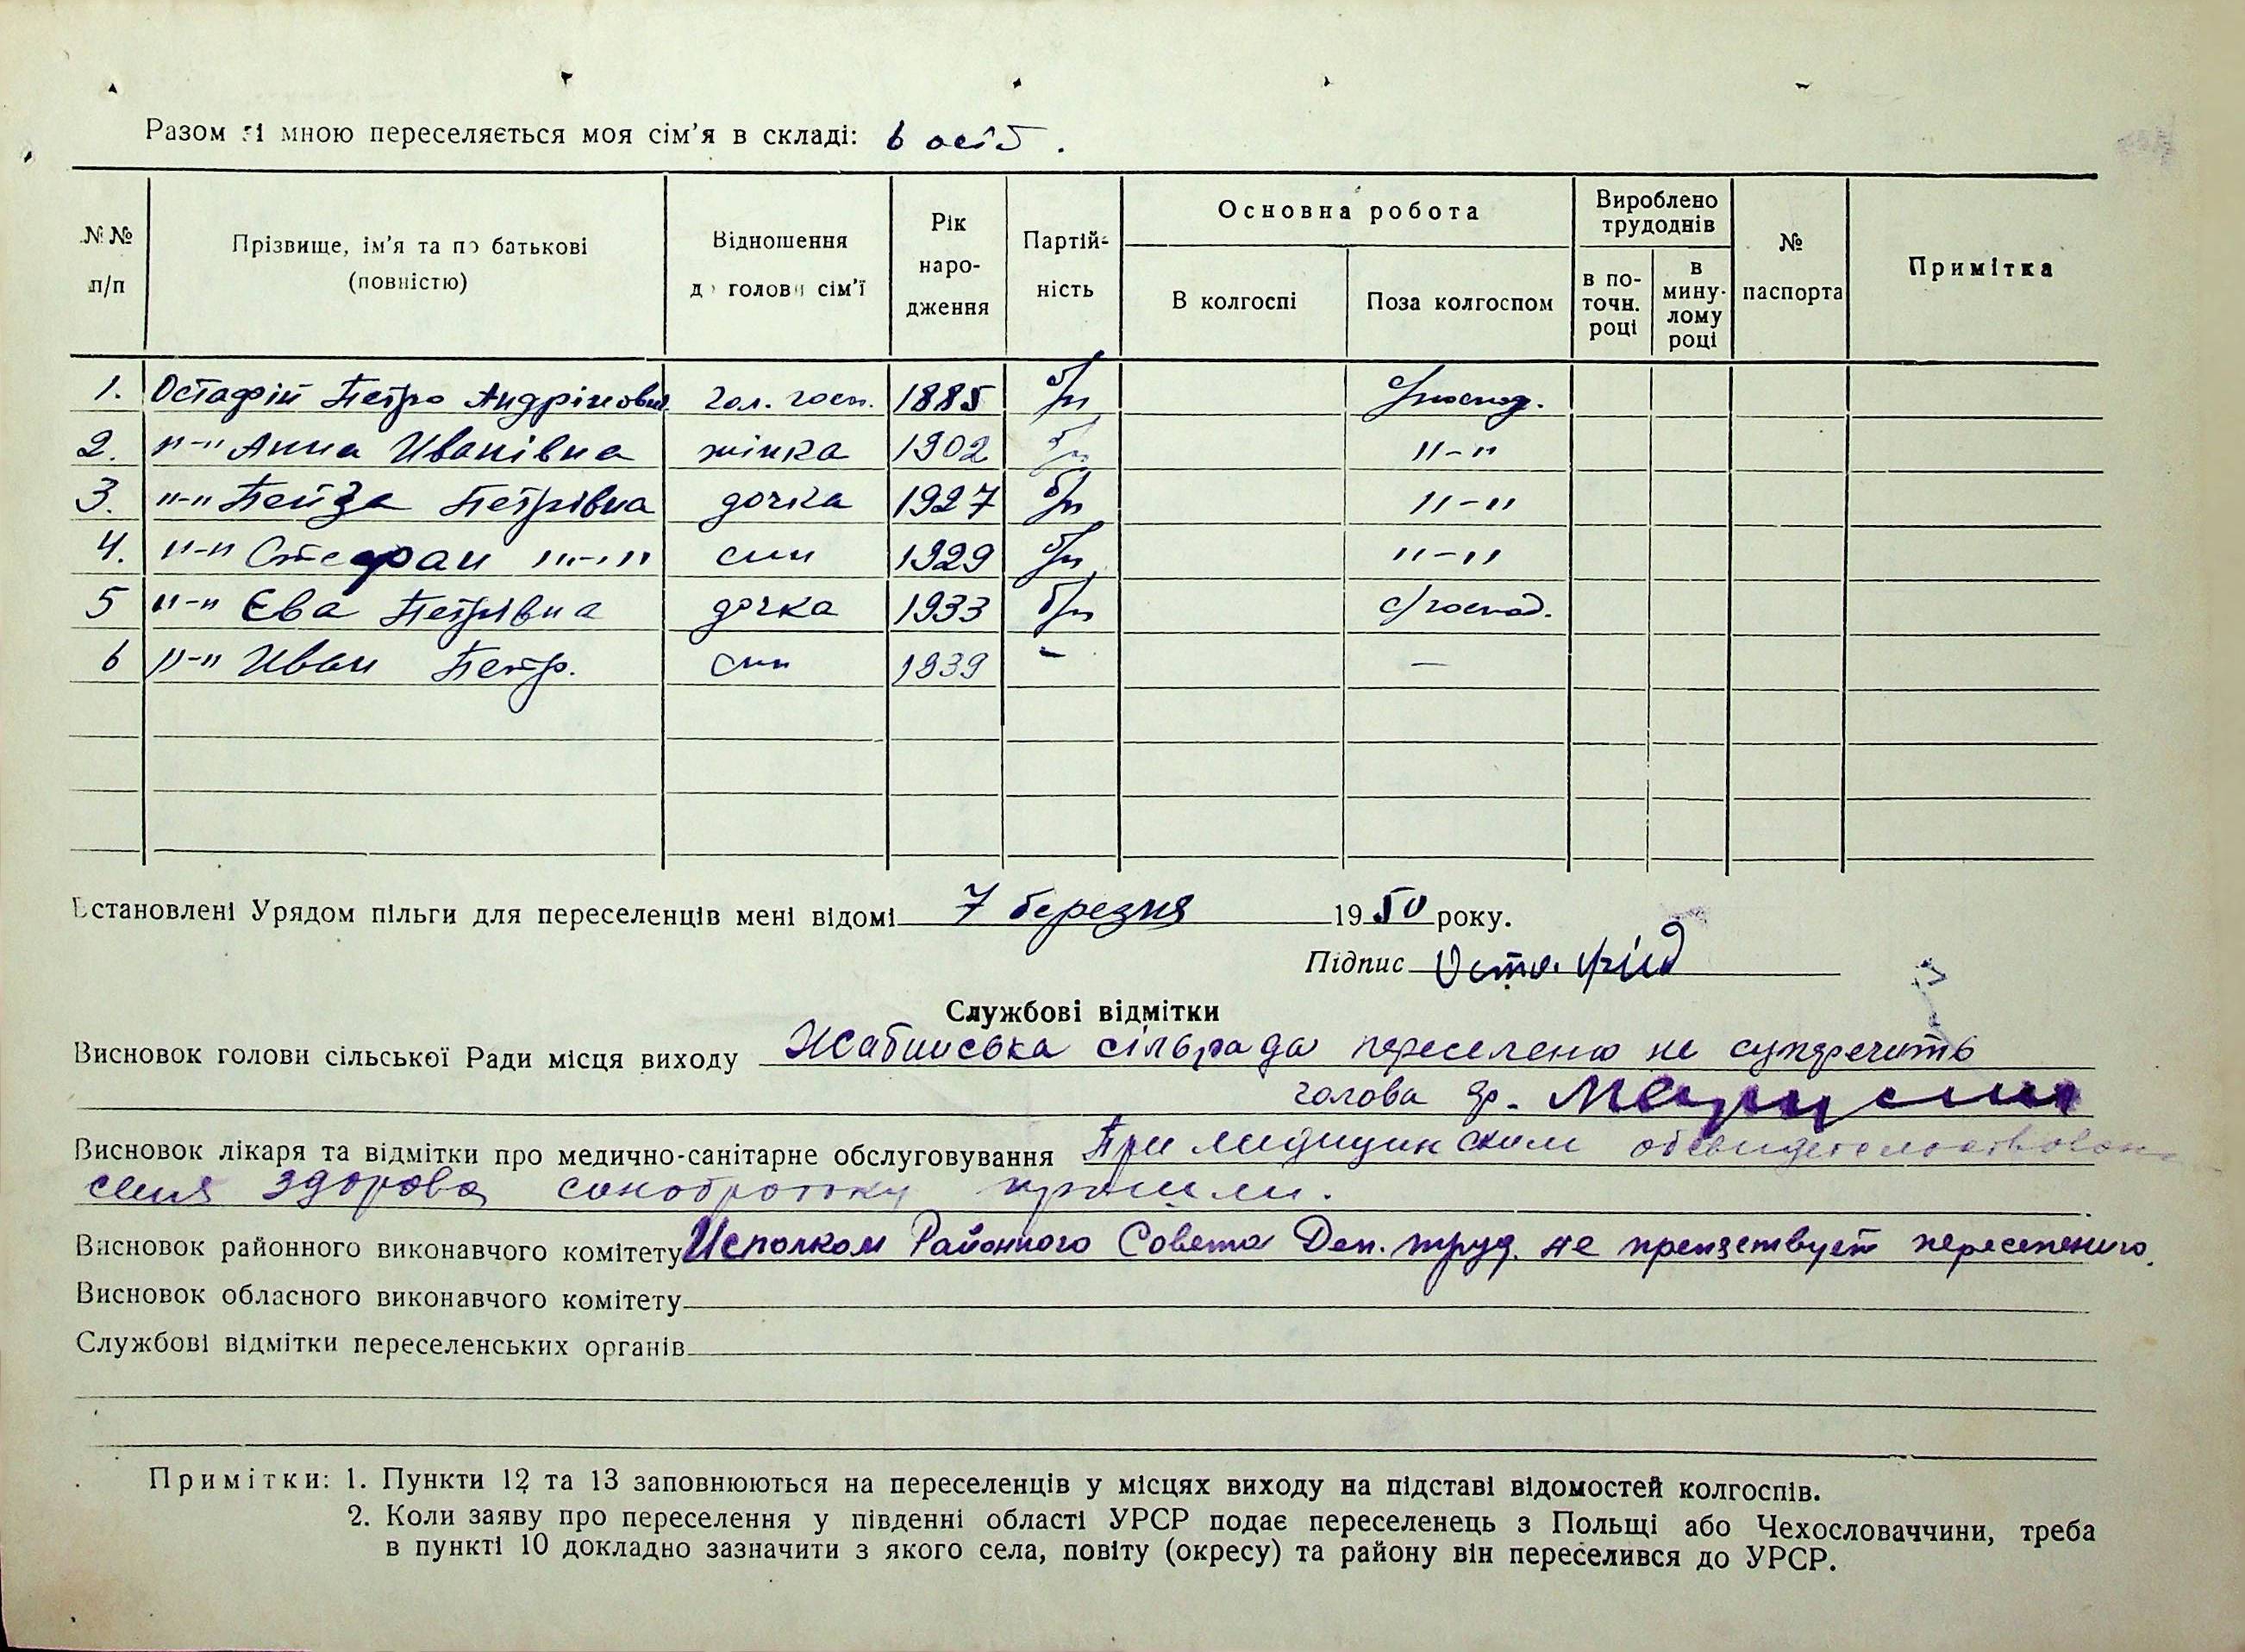 Разом зі мною переселяється моя сім'я в складі: 6 осіб.
№№ п/п
Прізвище, ім'я та по батькові (повністю)
Відношення до голови сім'ї
Рік народження
Партійність
Основна робота
В колгоспі
Поза колгоспом
Вироблено трудоднів
в поточн. році
в минулому році
№ паспорта
Примітка
1. Остафій Петро Андрійович гол. госп. 1885 б/п с/господ.
2. "-" Анна Иванівна жінка 1902 б/п "-"
3. "-" Петрівна дочка 1927 б/п "-"
4. "-" Стефан "-" син 1929 б/п "-"
5 "-" Єва Петрівна дочка 1933 б/п с/господ.
6 "-" Иван Петр. син 1939 - —
Встановлені Урядом пільги для переселенців мені відомі 7 березня 1950 року.
Підпис
Службові відмітки
Висновок голови сільської Ради місця виходу Жабинська сільрада переселеню не суперечить
голова
Висновок лікаря та відмітки про медично-санітарне обслуговування При медицинском обсвидетельствован
семя здорова санобротку прошли.
Висновок районного виконавчого комітету Исполком Районного Совета Деп. труд. не препятствует переселению.
Висновок обласного виконавчого комітету
Службові відмітки переселенських органів
Примітки: 1. Пункти 12 та 13 заповнюються на переселенців у місцях виходу на підставі відомостей колгоспів.
2. Коли заяву про переселення у південні області УРСР подає переселенець з Польщі або Чехословаччини, треба
в пункті 10 докладно зазначити з якого села, повіту (окресу) та району він переселився до УРСР.